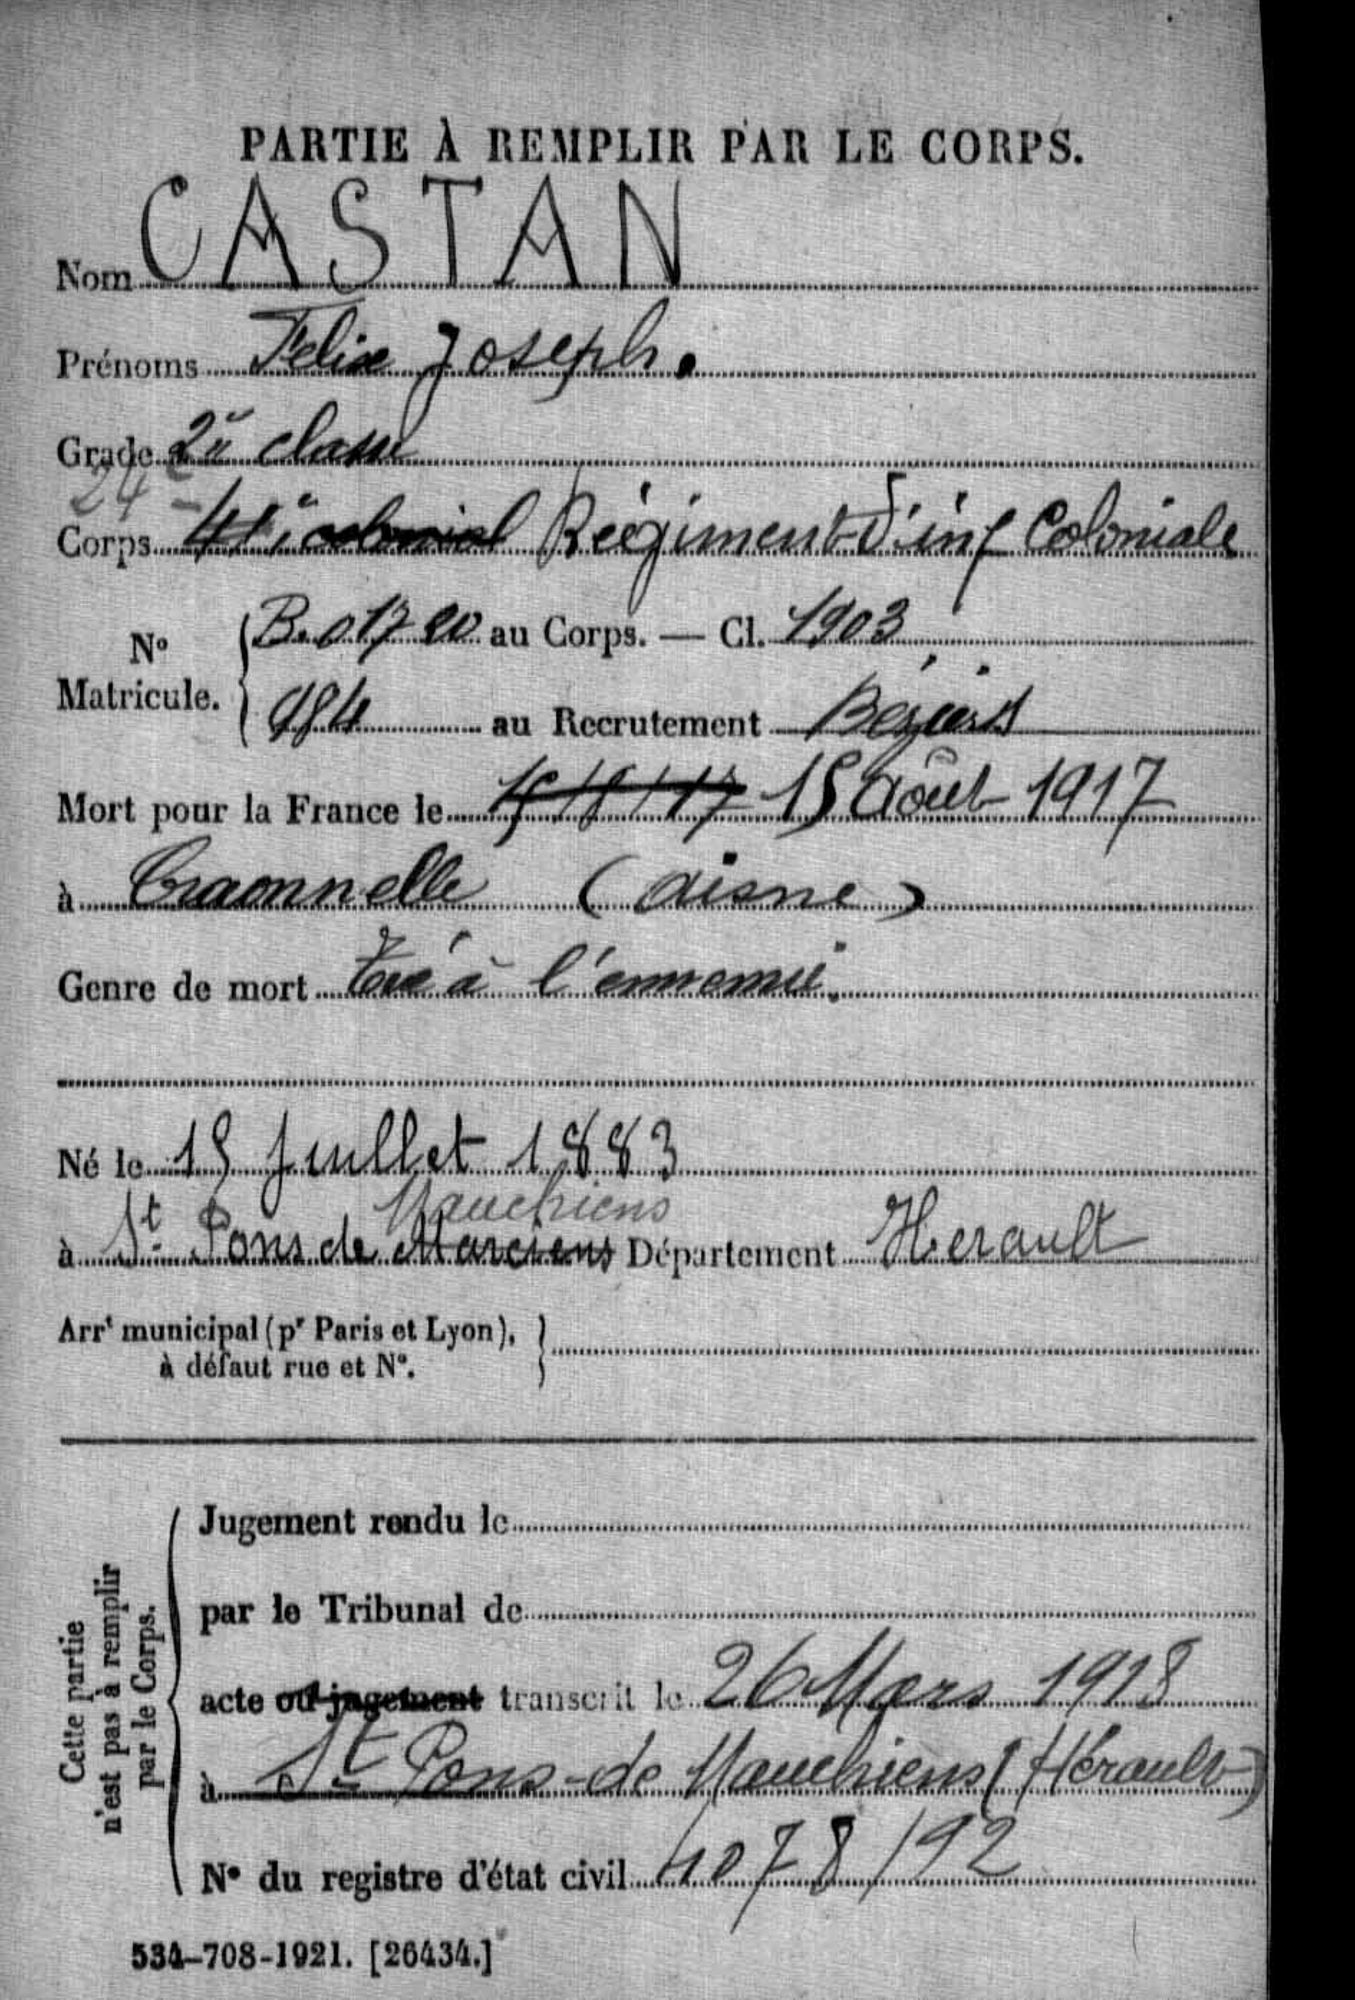 PARTIE À REMPLIR PAR LE CORPS.
Nom CASTAN
Prénoms Felix Joseph.
Grade 2e classe
24e
Corps 41e colonial Régiment d'inf Coloniale
No Matricule. { B. 01720 au Corps. — Cl. 1903
984 au Recrutement Béziers
Mort pour la France le 15/8/17 15 Août 1917
à Craonnelle (aisne)
Genre de mort tué à l'ennemie.
Né le 15 Juillet 1883
Mauchiens
à St Pons de Marciens Département Herault
Arrt municipal (pr Paris et Lyon),
à défaut rue et No. }
Cette partie
n'est pas à remplir
par le Corps.
Jugement rendu le
par le Tribunal de
acte ou jugement transcrit le 26 Mars 1918
à St Pons-de Mauchiens (Hérault)
No du registre d'état civil 4078/92
534-708-1921. [26434.]